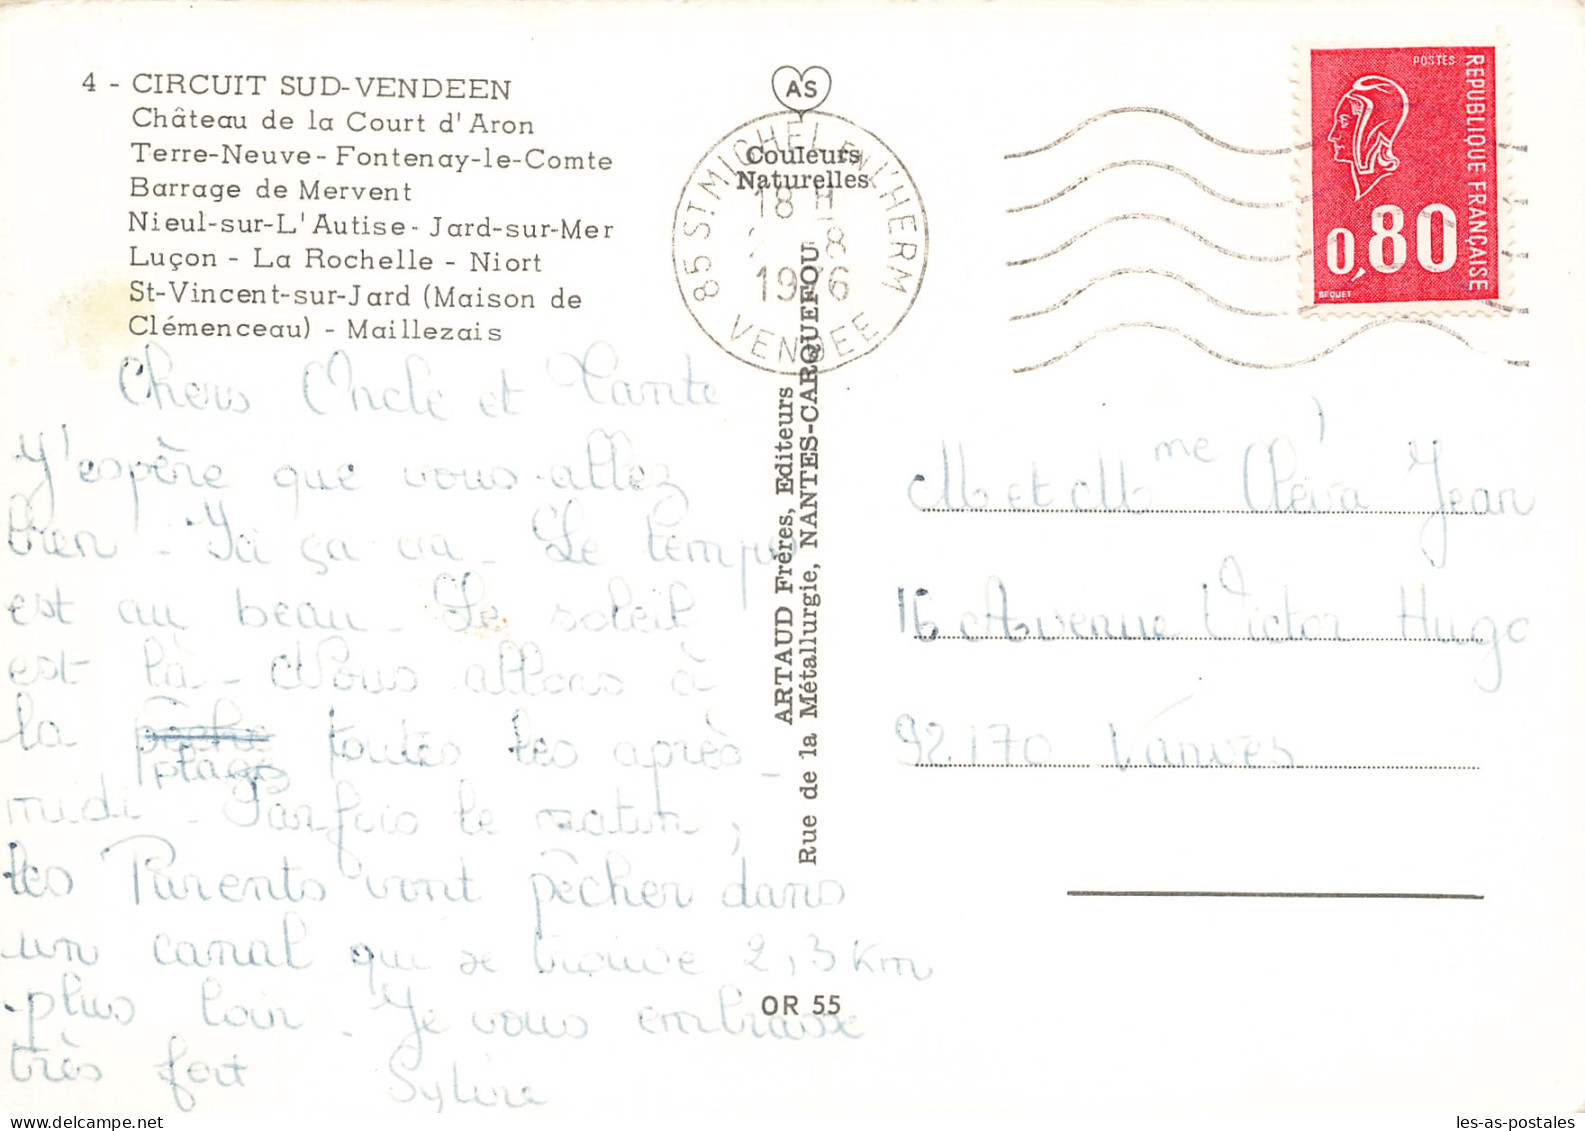 4 - CIRCUIT SUD-VENDEEN
Château de la Court d'Aron
Terre-Neuve - Fontenay-le-Comte
Barrage de Mervent
Nieul-sur-L'Autise - Jard-sur-Mer
Luçon - La Rochelle - Niort
St-Vincent-sur-Jard (Maison de
Clémenceau) - Maillezais
Chers Oncle et Tante
J'espère que vous allez
bien - Ici ça va - Le temps
est au beau - Le soleil
est là - Nous allons à
la pêche plage toutes les après-
midi - Parfois le matin,
les Parents vont pêcher dans
un canal qui se trouve 2,3 Km
plus loin - Je vous embrasse
très fort Sylvie
AS
Couleurs
Naturelles
85 ST MICHEL EN L'HERM
18 H
8
1976
VENDEE
ARTAUD Frères, Editeurs
Rue de la Métallurgie, NANTES-CARQUEFOU
OR 55
POSTES
REPUBLIQUE FRANÇAISE
0,80
BEQUET
M et Mme Jean
16 Avenue Victor Hugo
92170 Vanves
les-as-postales
Delcampe.net